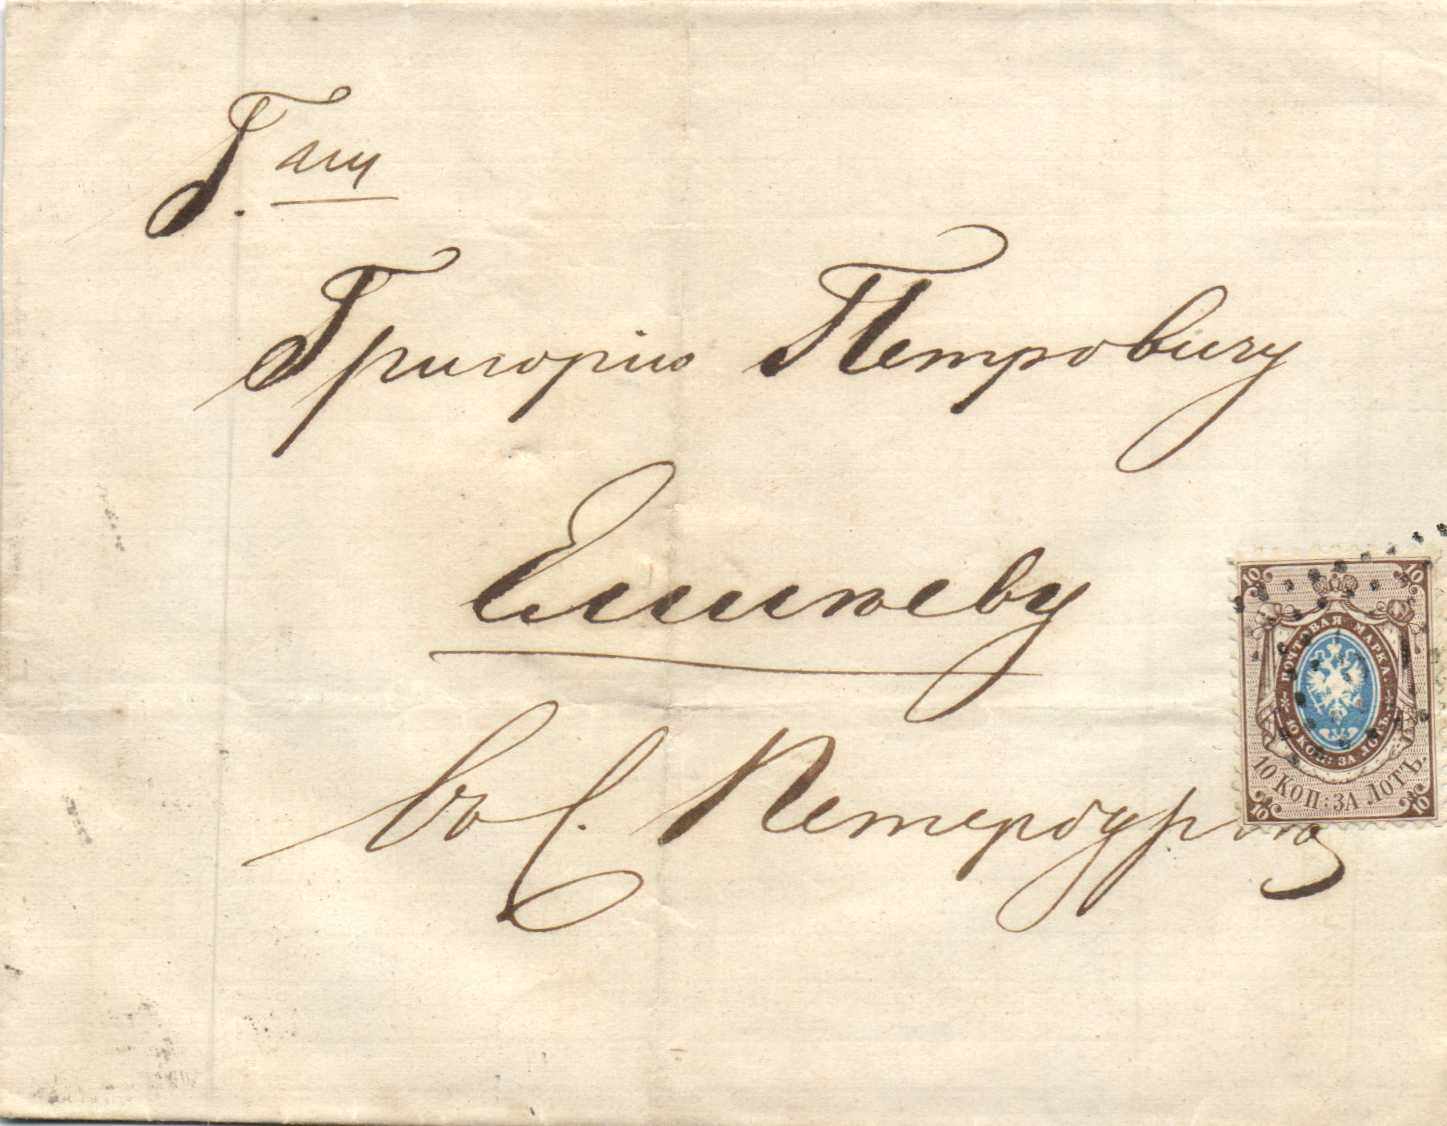 Г.
Григорію Петровичу
Елисѣеву
въ С. Петербургѣ
10 10
ПОЧТОВАЯ МАРКА.
10 КОП: ЗА ЛОТЪ.
10 КОП: ЗА ЛОТЪ.
10 10